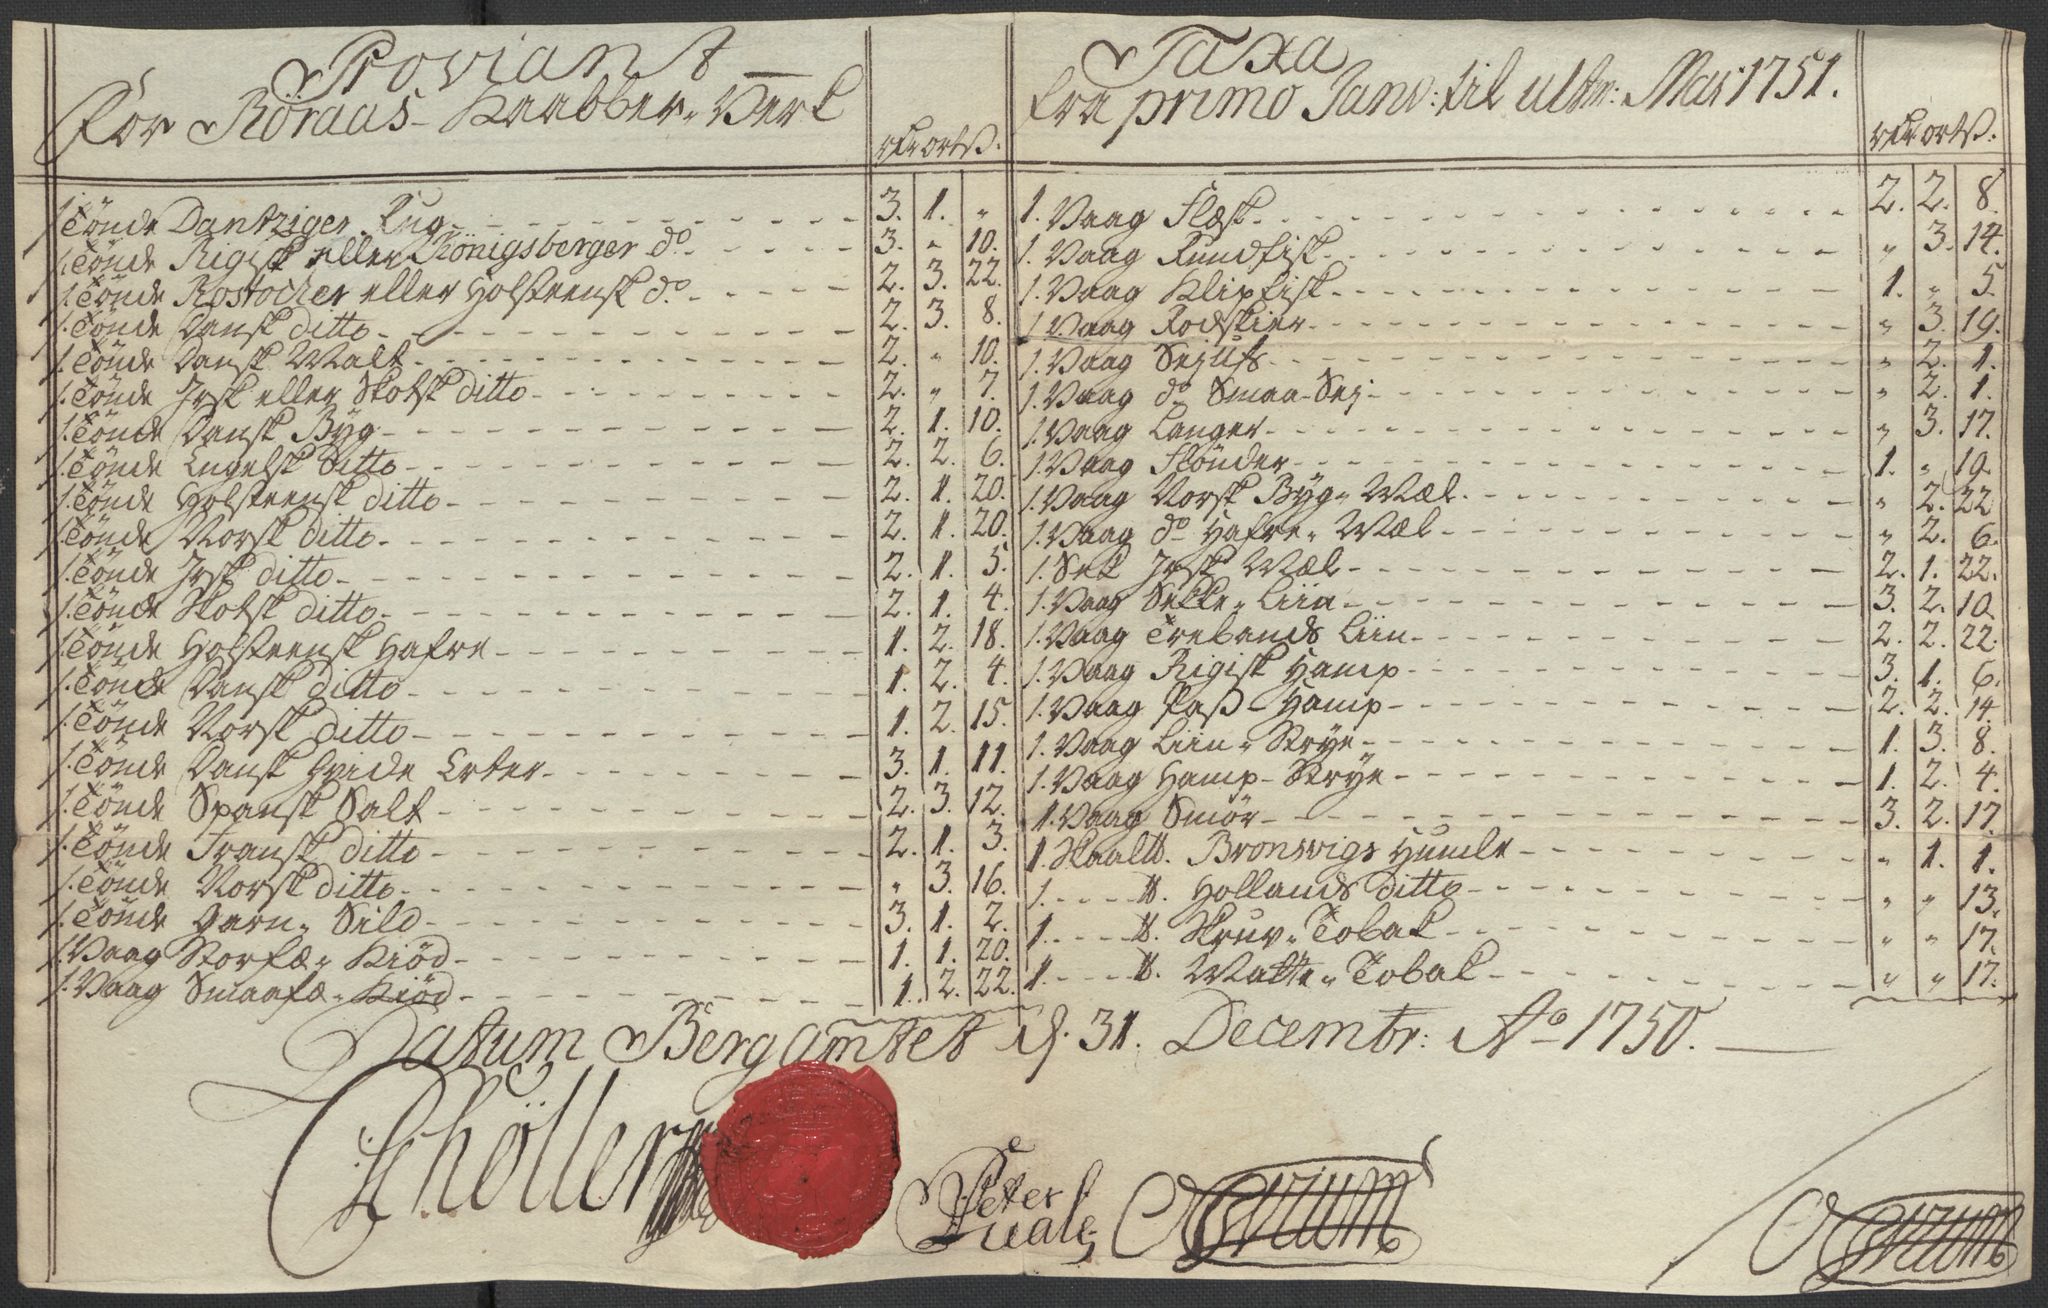 Proviant
For Röraas Kaabber-Verk
rdr ort ß.
1. Tönde Dantziger Rug 3. 1. "
1. Tönde Rigisk eller Königsberger do 3. " 10.
1. Tönde Rostocker eller Holsteensk do 2. 3. 22.
1. Tönde Dansk ditto 2. 3. 8.
1. Tönde Dansk Malt 2. " 10.
1. Tönde Irsk eller Skotsk ditto 2. " 7.
1. Tönde Dansk Byg 2. 1. 10.
1. Tönde Engelsk ditto 2. 2. 6.
1. Tönde Holsteensk ditto 2. 1. 20.
1. Tönde Norsk ditto 2. 1. 20.
1. Tönde Irsk ditto 2. 1. 5.
1. Tönde Skotsk ditto 2. 1. 4.
1. Tönde Holsteensk Hafre 1. 2. 18.
1. Tönde Dansk ditto 1. 2. 4.
1. Tönde Norsk ditto 1. 2. 15.
1. Tönde Dansk Hvide Erter 3. 1. 11.
1. Tönde Spansk Salt 2. 3. 12.
1. Tönde Fransk ditto 2. 1. 3.
1. Tönde Norsk ditto " 3. 16.
1. Tönde Garn-Sild 3. 1. 2.
1. Vaag Storfæ-Kiöd 1. 1. 20.
1. Vaag Smaafæ-Kiöd 1. 2. 22.
Taxa
fra primo Janv: til ult: Mar 1751.
rdr ort ß.
1. Vaag Flæsk 2. 2. 8.
1. Vaag Rundfisk " 3. 14.
1. Vaag Klipfisk 1. " 5
1. Vaag Rodskier " 3. 19.
1. Vaag Sejufs " 2. 1.
1. Vaag do Smaa-Sej " 2. 1.
1. Vaag Langer " 3. 17.
1. Vaag Flönder 1. " 19.
1. Vaag Norsk Byg-Mæl " 2. 22
1. Vaag do Hafre-Mæl " 2. 6.
1. Sek Irsk Mæl 2. 1. 22.
1. Vaag Sekke-Liin 3. 2. 10.
1. Vaag Trebands Liin 2. 2. 22.
1. Vaag Rigisk Hamp 3. 1. 6.
1. Vaag Paß-Hamp 2. 2. 14.
1. Vaag Liin-Strye 1. 3. 8.
1. Vaag Hamp-Strye 1. 2. 4.
1. Vaag Smör 3. 2. 17.
1. Skaal ℔. Bronsvigs Humle " 1. 1.
1. ℔. Hollands ditto " " 13.
1. ℔. Skruv-Tobak " " 17.
1. ℔. Matte-Tobak " " 17.
Datum Bergamtet d. 31. Decembr: Ao 1750.
Schöller
Peter